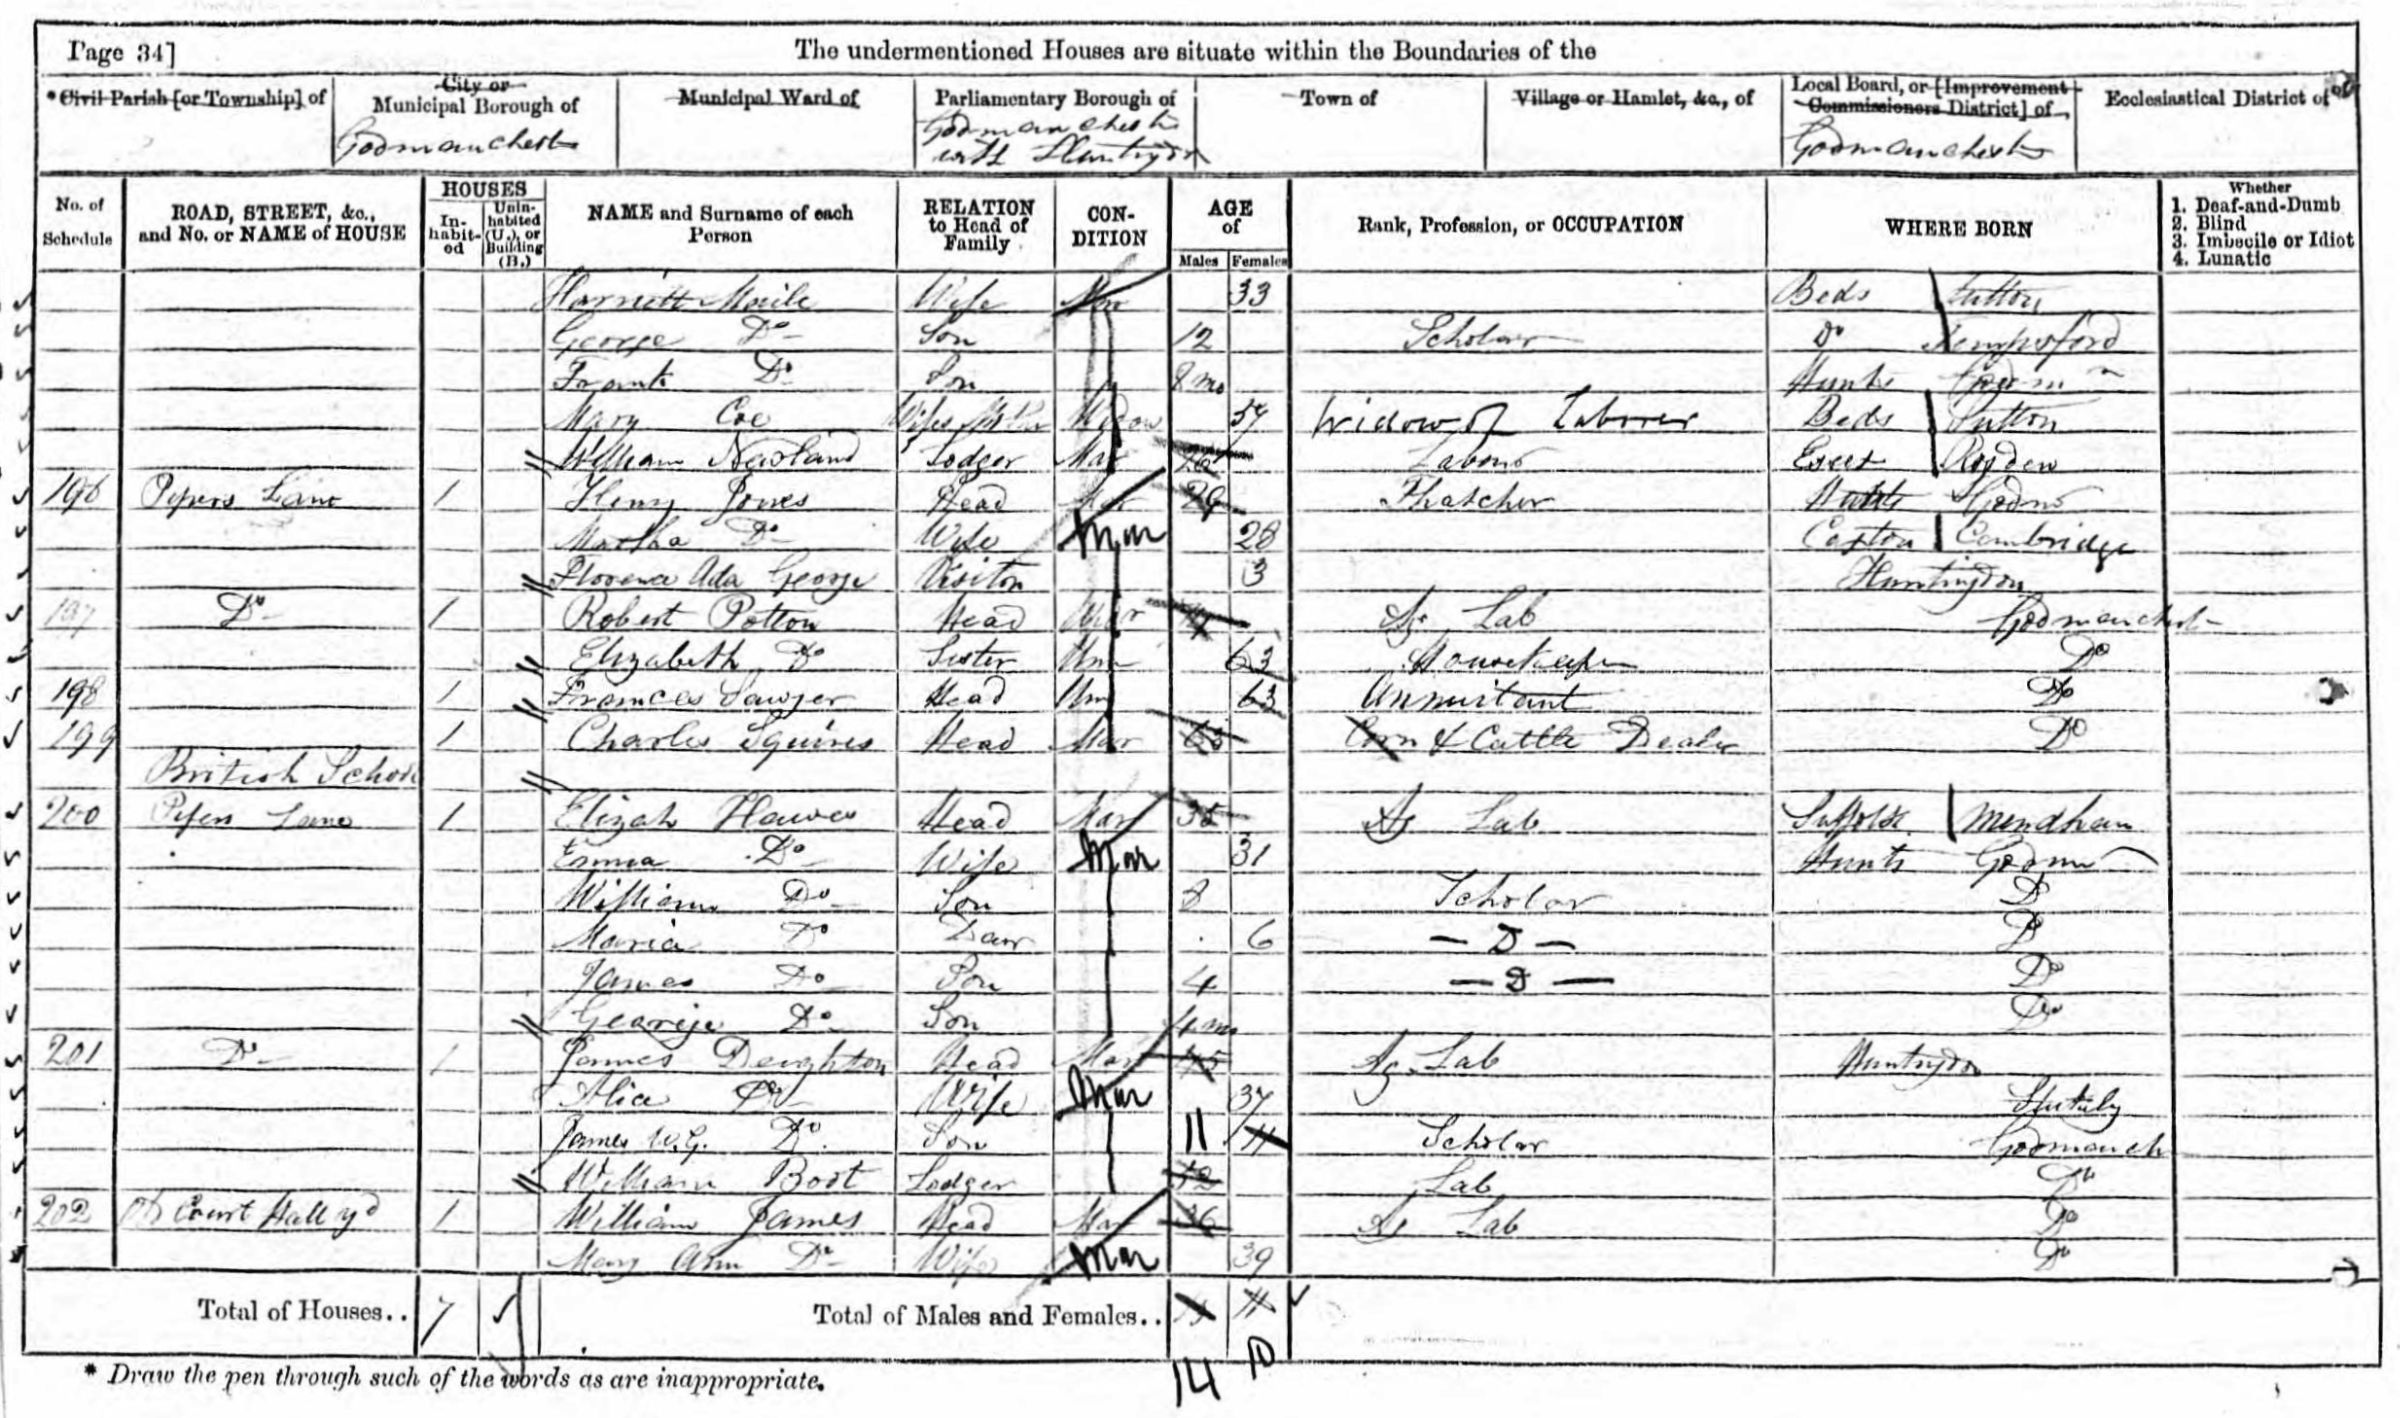 Page 34]
The undermentioned Houses are situate within the Boundaries of the
*Civil Parish [or Township] of
City or Municipal Borough of
Godmanchester
Municipal Ward of
Parliamentary Borough of
Godmanchester
with Huntingdon
Town of
Village or Hamlet, &c., of
Local Board, or [Improvement Commissioners District] of
Godmanchester
Ecclesiastical District of
No. of Schedule
ROAD, STREET, &c., and No. or NAME of HOUSE
HOUSES
Inhabited
Uninhabited (U.), or Building (B.)
NAME and Surname of each Person
RELATION to Head of Family
CONDITION
AGE of
Males Females
Rank, Profession, or OCCUPATION
WHERE BORN
Whether
1. Deaf-and-Dumb
2. Blind
3. Imbecile or Idiot
4. Lunatic
Harriett Maile Wife Mar 33 Beds Sutton
George Do Son 12 Scholar Do Tempsford
Frank Do Son 8 mo Hunts Godm
Mary Coe Wifes Mother Widow Widow of Laborer Beds Sutton
William Newland Lodger Mar Labour Essex Roydon
196 Pipers Lane 1 Henry Jones Head Mar 29 Thatcher Hunts Godm
Martha Do Wife Mar 28 Caxton Cambridge
Florence Ada George Visitor 3 Huntingdon
197 Do 1 Robert Potton Head Ag Lab Godmanchest
Elizabeth Do Sister Unm 63 Housekeeper Do
198 1 Frances Sawyer Head Unm 63 Annuitant Do
199 1 Charles Squires Head Mar 63 Corn & Cattle Dealer Do
British School
200 Pipers Lane 1 Elizah Hawes Head Mar 35 Ag Lab Suffolk Mendham
Emma Do Wife Mar 31 Hunts Godm
William Do Son 8 Scholar Do
Maria Do Daur 6 Do Do
James Do Son 4 Do Do
George Do Son mo Do
201 Do 1 James Deighton Head Mar 45 Ag Lab Huntingdon
Alice Do Wife Mar 37
James W.G. Do Son 11 11 Scholar Godmanch
William Boot Lodger 52 Lab Do
202 Court Hall yd 1 William James Head Mar 36 Ag Lab Do
Mary Ann Do Wife Mar 39 Do
Total of Houses.. 7
Total of Males and Females.. 11
14 10
* Draw the pen through such of the words as are inappropriate.